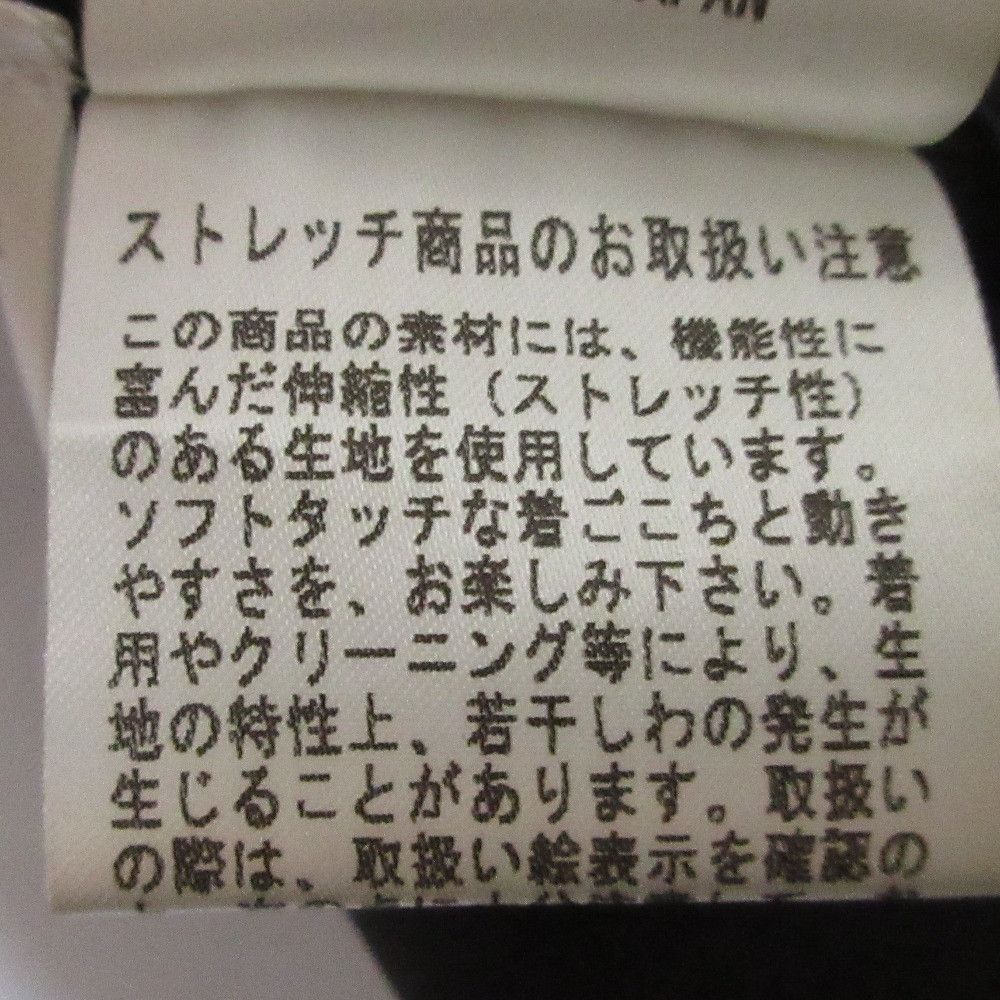 ストレッチ商品のお取扱い注意
この商品の素材には、機能性に
富んだ伸縮性（ストレッチ性）
のある生地を使用しています。
ソフトタッチな着ごこちと動き
やすさを、お楽しみ下さい。着
用やクリーニング等により、生
地の特性上、若干しわの発生が
生じることがあります。取扱い
の際は、取扱い絵表示を確認の